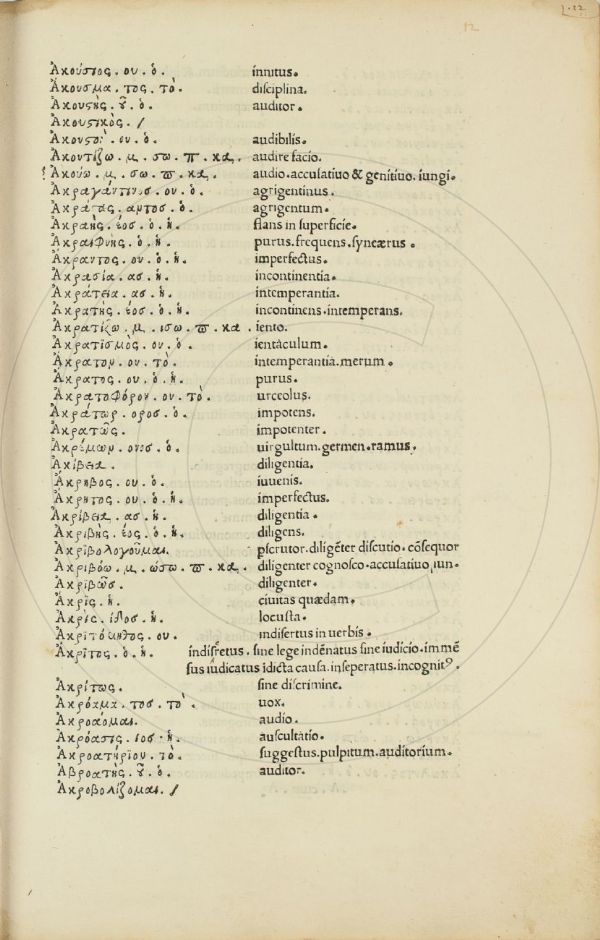 12
Ακούσιος. ου. ὁ. inuitus.
Ακουσμα. τος. τὸ. disciplina.
Ακουςὴς. ȣ͂. ὁ. auditor.
Ακουςικὸς. /
Ακουςὸς. ου. ὁ. audibilis.
Ακουτίζω. μ. σω. π. κα. audire facio.
Ακούω. μ. σω. π. κα. audio. accusatiuo & genitiuo. iungi.
Ακραγάντινοσ. ου. ὁ. agrigentinus.
Ακράγας. αντος. ὁ. agrigentum.
Ακραὴς. έος. ὁ. ἡ. flans in superficie.
Ακραιφνὴς. ὁ. ἡ. purus. frequens. syncærus.
Ακραντος. ου. ὁ. ἡ. imperfectus.
Ακρασία. ασ. ἡ. incontinentia.
Ακράτεια. ασ. ἡ. intemperantia.
Ακρατὴς. έος. ὁ. ἡ. incontinens. intemperans.
Ακρατίζω. μ. ισω. π. κα. iento.
Ακρατισμὸς. ου. ὁ. ientaculum.
Ακρατον. ου. τὸ. intemperantia. merum.
Ακρατος. ου. ὁ. ἡ. purus.
Ακρατοφόρον. ου. τὸ. urceolus.
Ακράτωρ. ορος. ὁ. impotens.
Ακρατῶς. impotenter.
Ακρέμων. ονοσ. ὁ. uirgultum. germen. ramus.
Ακίβεια. diligentia.
Ακρηβος. ου. ὁ. iuuenis.
Ακρητος. ου. ὁ. ἡ. imperfectus.
Ακρίβεια. ασ. ἡ. diligentia.
Ακριβὴς. έος. ὁ. ἡ. diligens.
Ακριβολογοῦμαι. pscrutor. diligẽter discutio. cõsequor
Ακριβόω. μ. ώσω. π. κα. diligenter cognosco. accusatiuo iun.
Ακριβῶσ. diligenter.
Ακρὶς. ἡ. ciuitas quædam.
Ακρὶς. ίδοσ. ἡ. locusta.
Ακριτόμηθος. ου. indisertus in uerbis.
Ακρῖτος. ὁ. ἡ. indiscretus. sine lege indẽnatus sine iudicio. immẽ
sus iudicatus idicta causa. inseperatus. incognitꝰ.
Ακρίτως. sine discrimine.
Ακρόαμα. τοσ. τὸ. uox.
Ακροάομαι. audio.
Ακρόασις. εοσ. ἡ. auscultatio.
Ακροατήριον. τὸ. suggestus. pulpitum. auditorium.
Αβροατὴς. ȣ͂. ὁ. auditor.
Ακροβολίζομαι. /